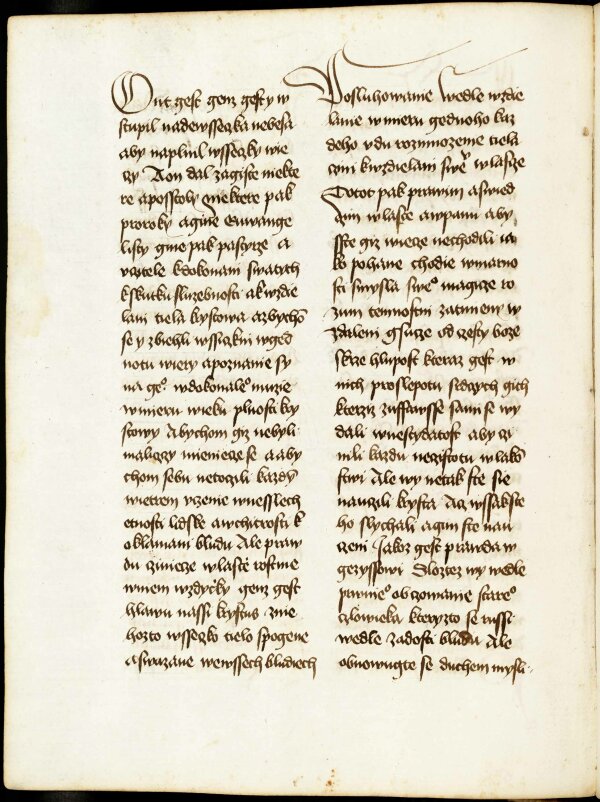 Ont gest genz gesty w
stupil nadewsseczka nebesa
aby naplnil wsseczky wie
czy Aon dal zagiste niekte
re aposstoly niektere pak
proroky agine Ewange
listy gine pak pastyrze a
vczitele kdokonani swatych
kskutku sluzebnosti akwzdie
lani tiela krystowa azbychō
se y zbiehli wssickni wged
notu wiery apoznanie sy
na geᵒ wdokonaleᵒ muzie
wmieru wieku plnosti kry
stowy Abychom giz nebyli
maliczzy mieniecze se aaby
chom sebu netoczili kazdým
wietrem vczenie wnesslech
etnosti lidske awchitrosti k
oklamani bludu Ale praw
du cziniecze wlasce rostme
wniem wzdyczky genz gest
hlawu nassi krystus znie
hozto wsseczko tielo spogene
aswazane wewssech kludiech
Posluhowanie wedle wzdie
lanie wmieru gednoho kaz
deho vdu rozmnozenie tiela
czini kwzdielani sweᵒ wlasce
Totot pak prawim aswied
czim wlasce wpanu aby
sste giz wiecze nechodili ia
ko pohane chodie wmarno
sti smysla sweᵒ magicze ro
zum temnostmi zatmeny w
zdaleni gsucze od czesty boze
skrze hlupost kteraz gest w
nich proslepotu srdczych gich
kterziz zuffawsse sami se wy
dali wnestydatost aby czi
nili kazdu neczistotu wlakō
stwi Ale wy netak ste sie
nauczili krysta Acz wssakste
ho slychali agim ste nau
czeni Iakoz gest prawda w
gezyssowi Slozte wy wedle
prwnieᵒ obczowanie stareᵒ
czlowieka kteryzto se russi
wedle zadosti bludu Ale
obnowugte se duchem mysli